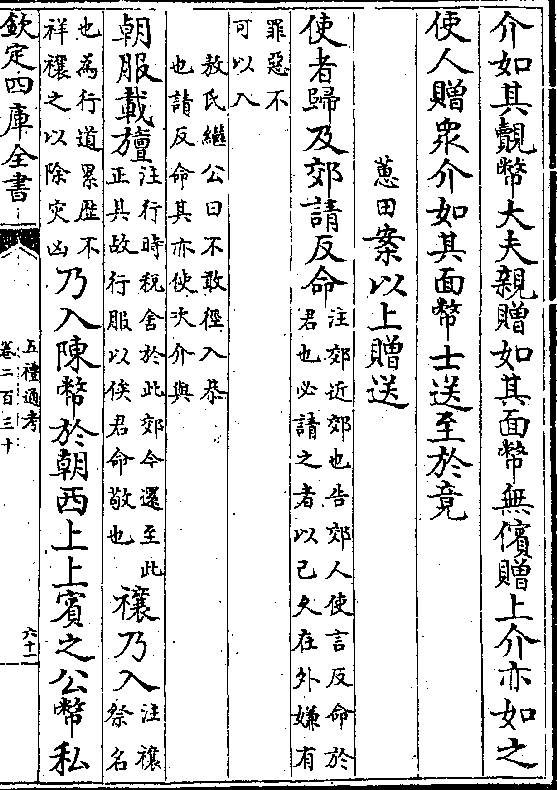 介如其覿幣大夫親贈如其面幣無儐贈上介亦如之
使人贈眾介如其面幣士送至於竟
蕙田案以上贈送
使者歸及郊請反命注郊近郊也告郊人使言反命於
君也必請之者以已久在外嫌有
罪惡不
可以入
敖氏繼公曰不敢徑入恭
也請反命其亦使次介與
朝服載旜注行時稅舍於此郊今還至此
正其故行服以俟君命敬也
禳乃入注禳
祭名
也為行道累歴不
祥禳之以除灾凶
乃入陳幣於朝西上上賓之公幣私
欽定四庫全書
五禮通考
卷二百三十
六十一